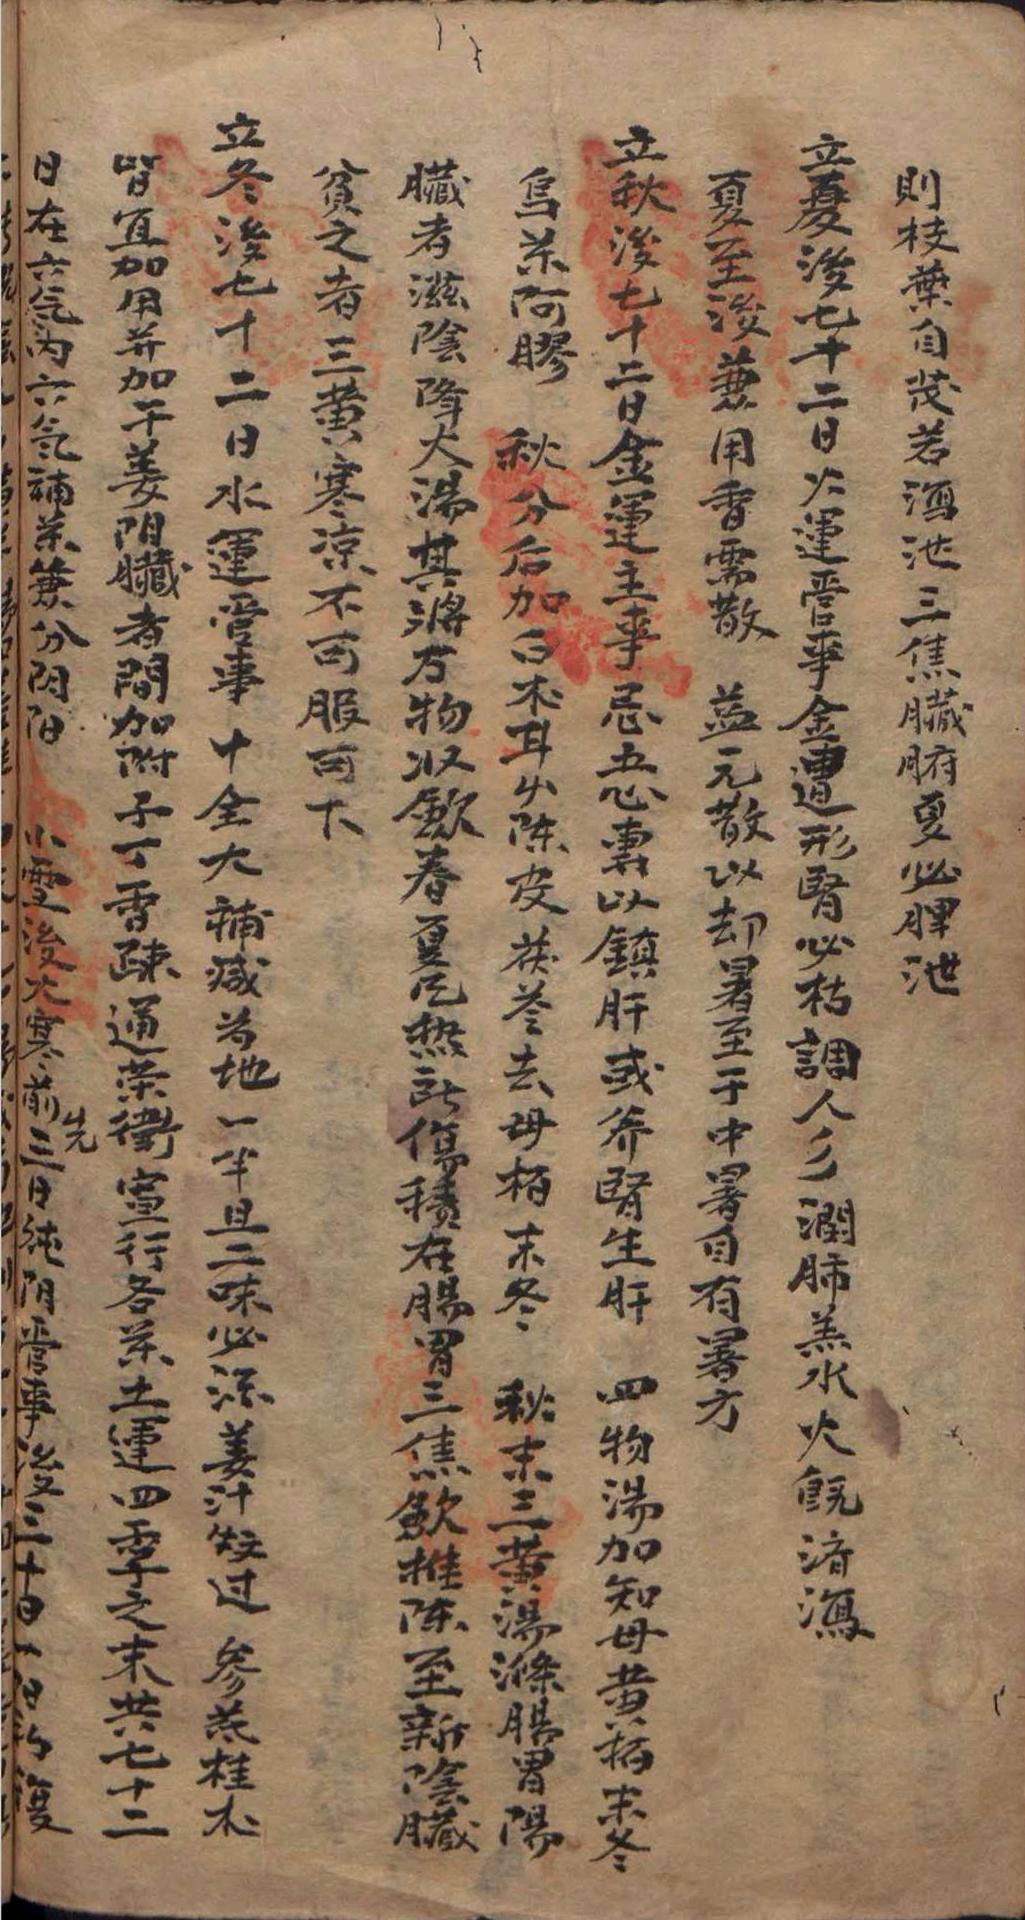 則枝葉自茂若酒池三焦臟腑夏必脾泄
立夏後七十二日火運管事金遭形腎必枯調人多潤肺羔水火既済瀉
夏至後兼用香需散 益元散以却暑至于中暑自有暑方
立秋後七十二日金運主事忌五心專以鎮肝或养腎生肝 四物湯加知母黄栢末冬
烏茶阿膠 秋分后加白木耳少陈皮茯苓去母栢末冬 秋末三黄湯滌腸胃陽
臟者滋陰降火湯其將万物収歛春夏凡热所傷積在腸胃三焦歛推陈至新陰臟
貧之者三黄寒凉不可服可下
立冬後七十二日水運管事十全大補减为地一半且二味必添姜汁炒过 参茋桂朮
皆宜加用并加干姜阴臟者間加附子丁香疎通荣衛宣行各茶土運四季之末共七十二
日在六气内六氣補茶兼分阴阳 小雪後大寒前先三日純阴管事後三十日一阳初復